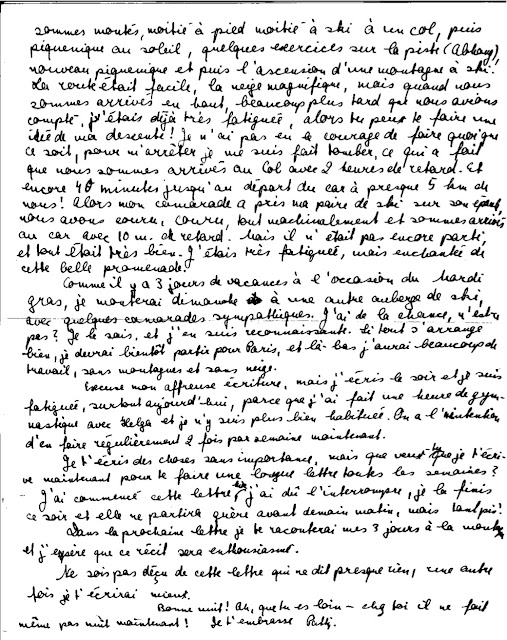 sommes montés, moitié à pied moitié à ski à un col, puis
piquenique au soleil, quelques exercices sur la piste (Abhang),
nouveau piquenique et puis l'ascension d'une montagne à ski.
La route était facile, la neige magnifique, mais quand nous
sommes arrivés en haut, beaucoup plus tard que nous avions
compté, j'étais déjà très fatiguée, alors tu peux te faire une
idée de ma descente! Je n'ai pas eu le courage de faire quoi que
ce soit, pour m'arrêter je me suis fait tomber, ce qui a fait
que nous sommes arrivés au Col avec 2 heures de retard. Et
encore 40 minutes jusqu'au départ du car à presque 5 km de
nous! Alors mon camarade a pris ma paire de ski sur son épaule,
nous avons couru, couru, tout machinalement et sommes arrivés
au car avec 10 m. de retard. Mais il n'était pas encore parti,
et tout était très bien. J'étais très fatiguée, mais enchantée de
cette belle promenade.
Comme il y a 3 jours de vacances à l'occasion du Mardi
gras, je monterai dimanche à une autre auberge de ski,
avec quelques camarades sympathiques. J'ai de la chance, n'est ce
pas? Je le sais, et j'en suis reconnaissante. Si tout s'arrange
bien, je devrai bientôt partir pour Paris, et là-bas j'aurai beaucoup de
travail, sans montagnes et sans neige.
Excuse mon affreuse écriture, mais j'écris le soir et je suis
fatiguée, surtout aujourd'hui, parce que j'ai fait une heure de gym-
nastique avec Helga et je n'y suis plus bien habituée. On a l'intention
d'en faire régulièrement 2 fois par semaine maintenant.
Je t'écris des choses sans importance, mais que veux tu que je t'écri-
ve maintenant pour te faire une longue lettre toutes les semaines?
J'ai commencé cette lettre, j'ai dû l'interrompre, je la finis
ce soir et elle ne partira guère avant demain matin, mais tant pis!
Dans la prochaine lettre je te raconterai mes 3 jours à la montagne
et j'espère que ce récit sera enthousiasmé.
Ne sois pas déçu de cette lettre qui ne dit presque rien, une autre
fois je t'écrirai mieux.
Bonne nuit! Ah, que tu es loin - chez toi il ne fait
même pas nuit maintenant! Je t'embrasse